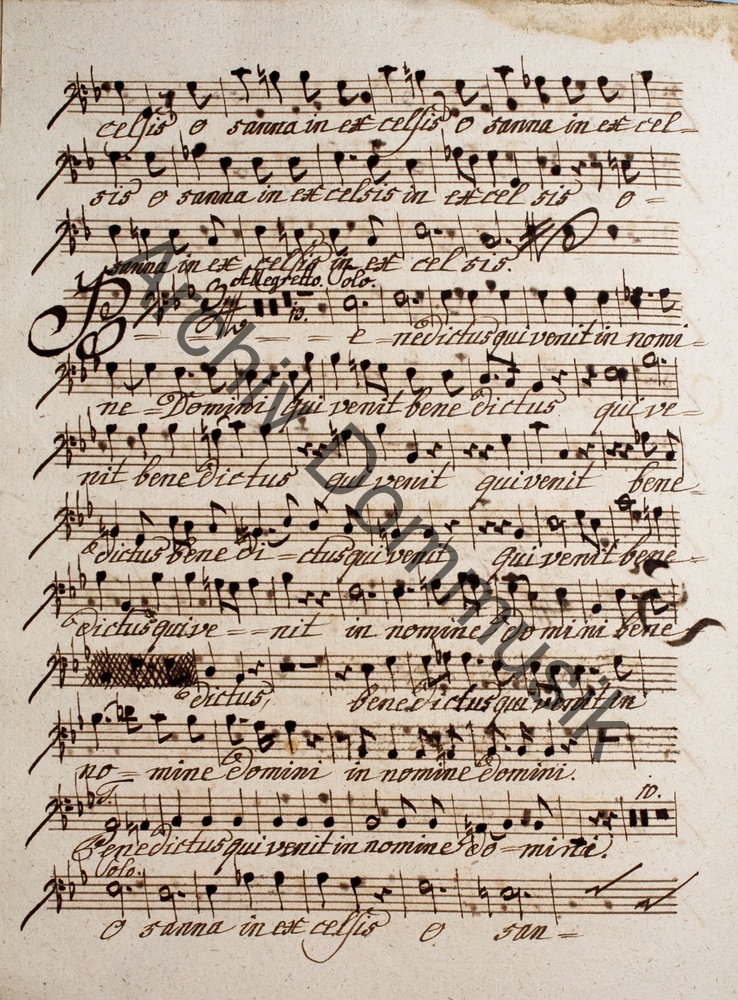 celsis O sanna in ex celsis O sanna in ex cel=
sis O sanna in ex celsis in excel sis O=
sanna in ex celsis in ex cel sis.
Allegretto. Solo.
13.
B - - - e - nedictus qui venit in nomi=
ne = Domini qui venit bene dictus qui ve=
nit bene dictus qui venit qui venit bene=
dictus bene di - ctus qui venit qui venit bene=
dictus qui ve = = nit in nomine domini bene
dictus, benedictus qui venit in
no = mine Domini in nomine Domini.
T. 10.
Benedictus qui venit in nomine do = mini.
Solo.
O sanna in ex celsis O san=
Archiv Dommusik